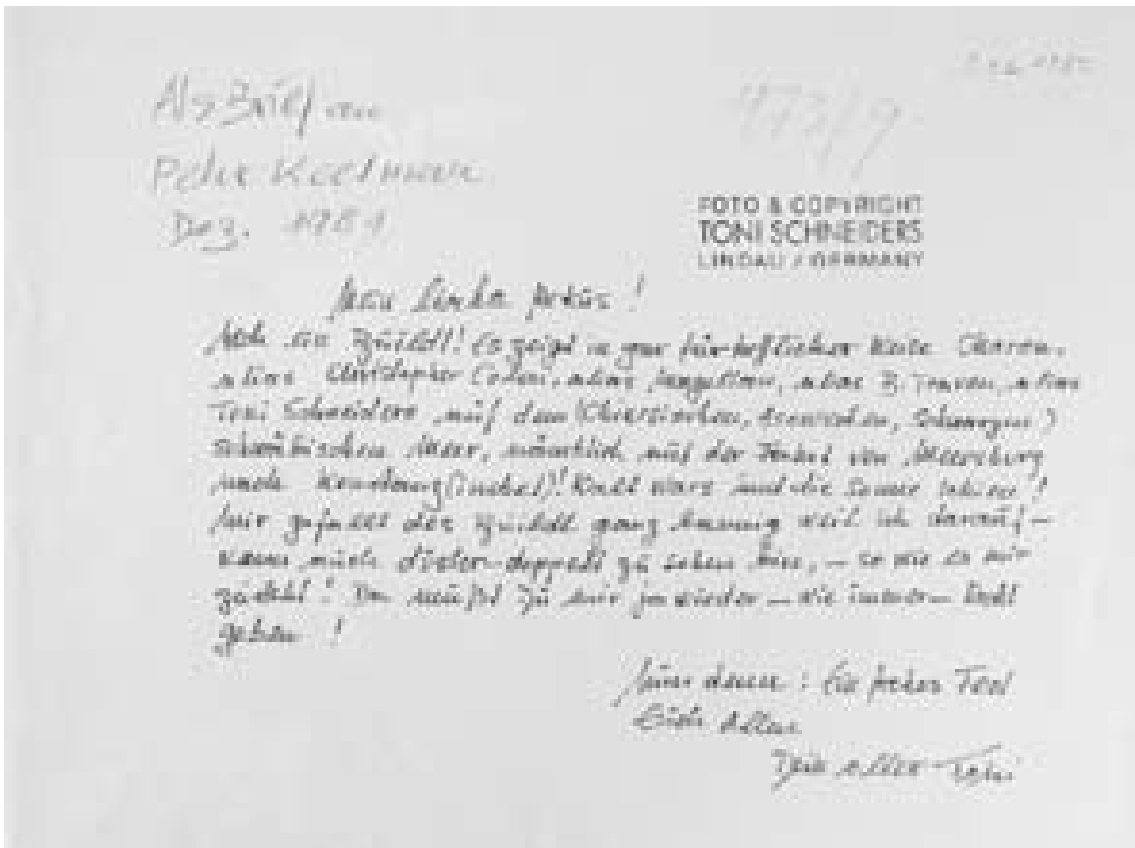 Als Brief an
Peter Keetman
Dez. 1981
FOTO & COPYRIGHT
TONI SCHNEIDERS
LINDAU / GERMANY
Mein lieber
Noch ein Büildl! Es zeigt in gar fürtrefflicher Weise Charon,
alias Christopher Colon, alias Magellan, alias B. Traven, alias
Toni Schneiders auf dem (Schwarzen)
Schwäbischen Meer, nämlich auf der von Meersburg
nach Konstanz Kalt wars und die Sonne schien!
Mir gefallet des Büildl ganz weil ich darauf –
wenn auch düster – doppelt zu sehen bin, – so wie es mir
zusteht! Da mußt Du mir ja wieder – wie immer – Recht
geben!
denn: Ein frohes Fest
Euch Allen
Dein alter Toni